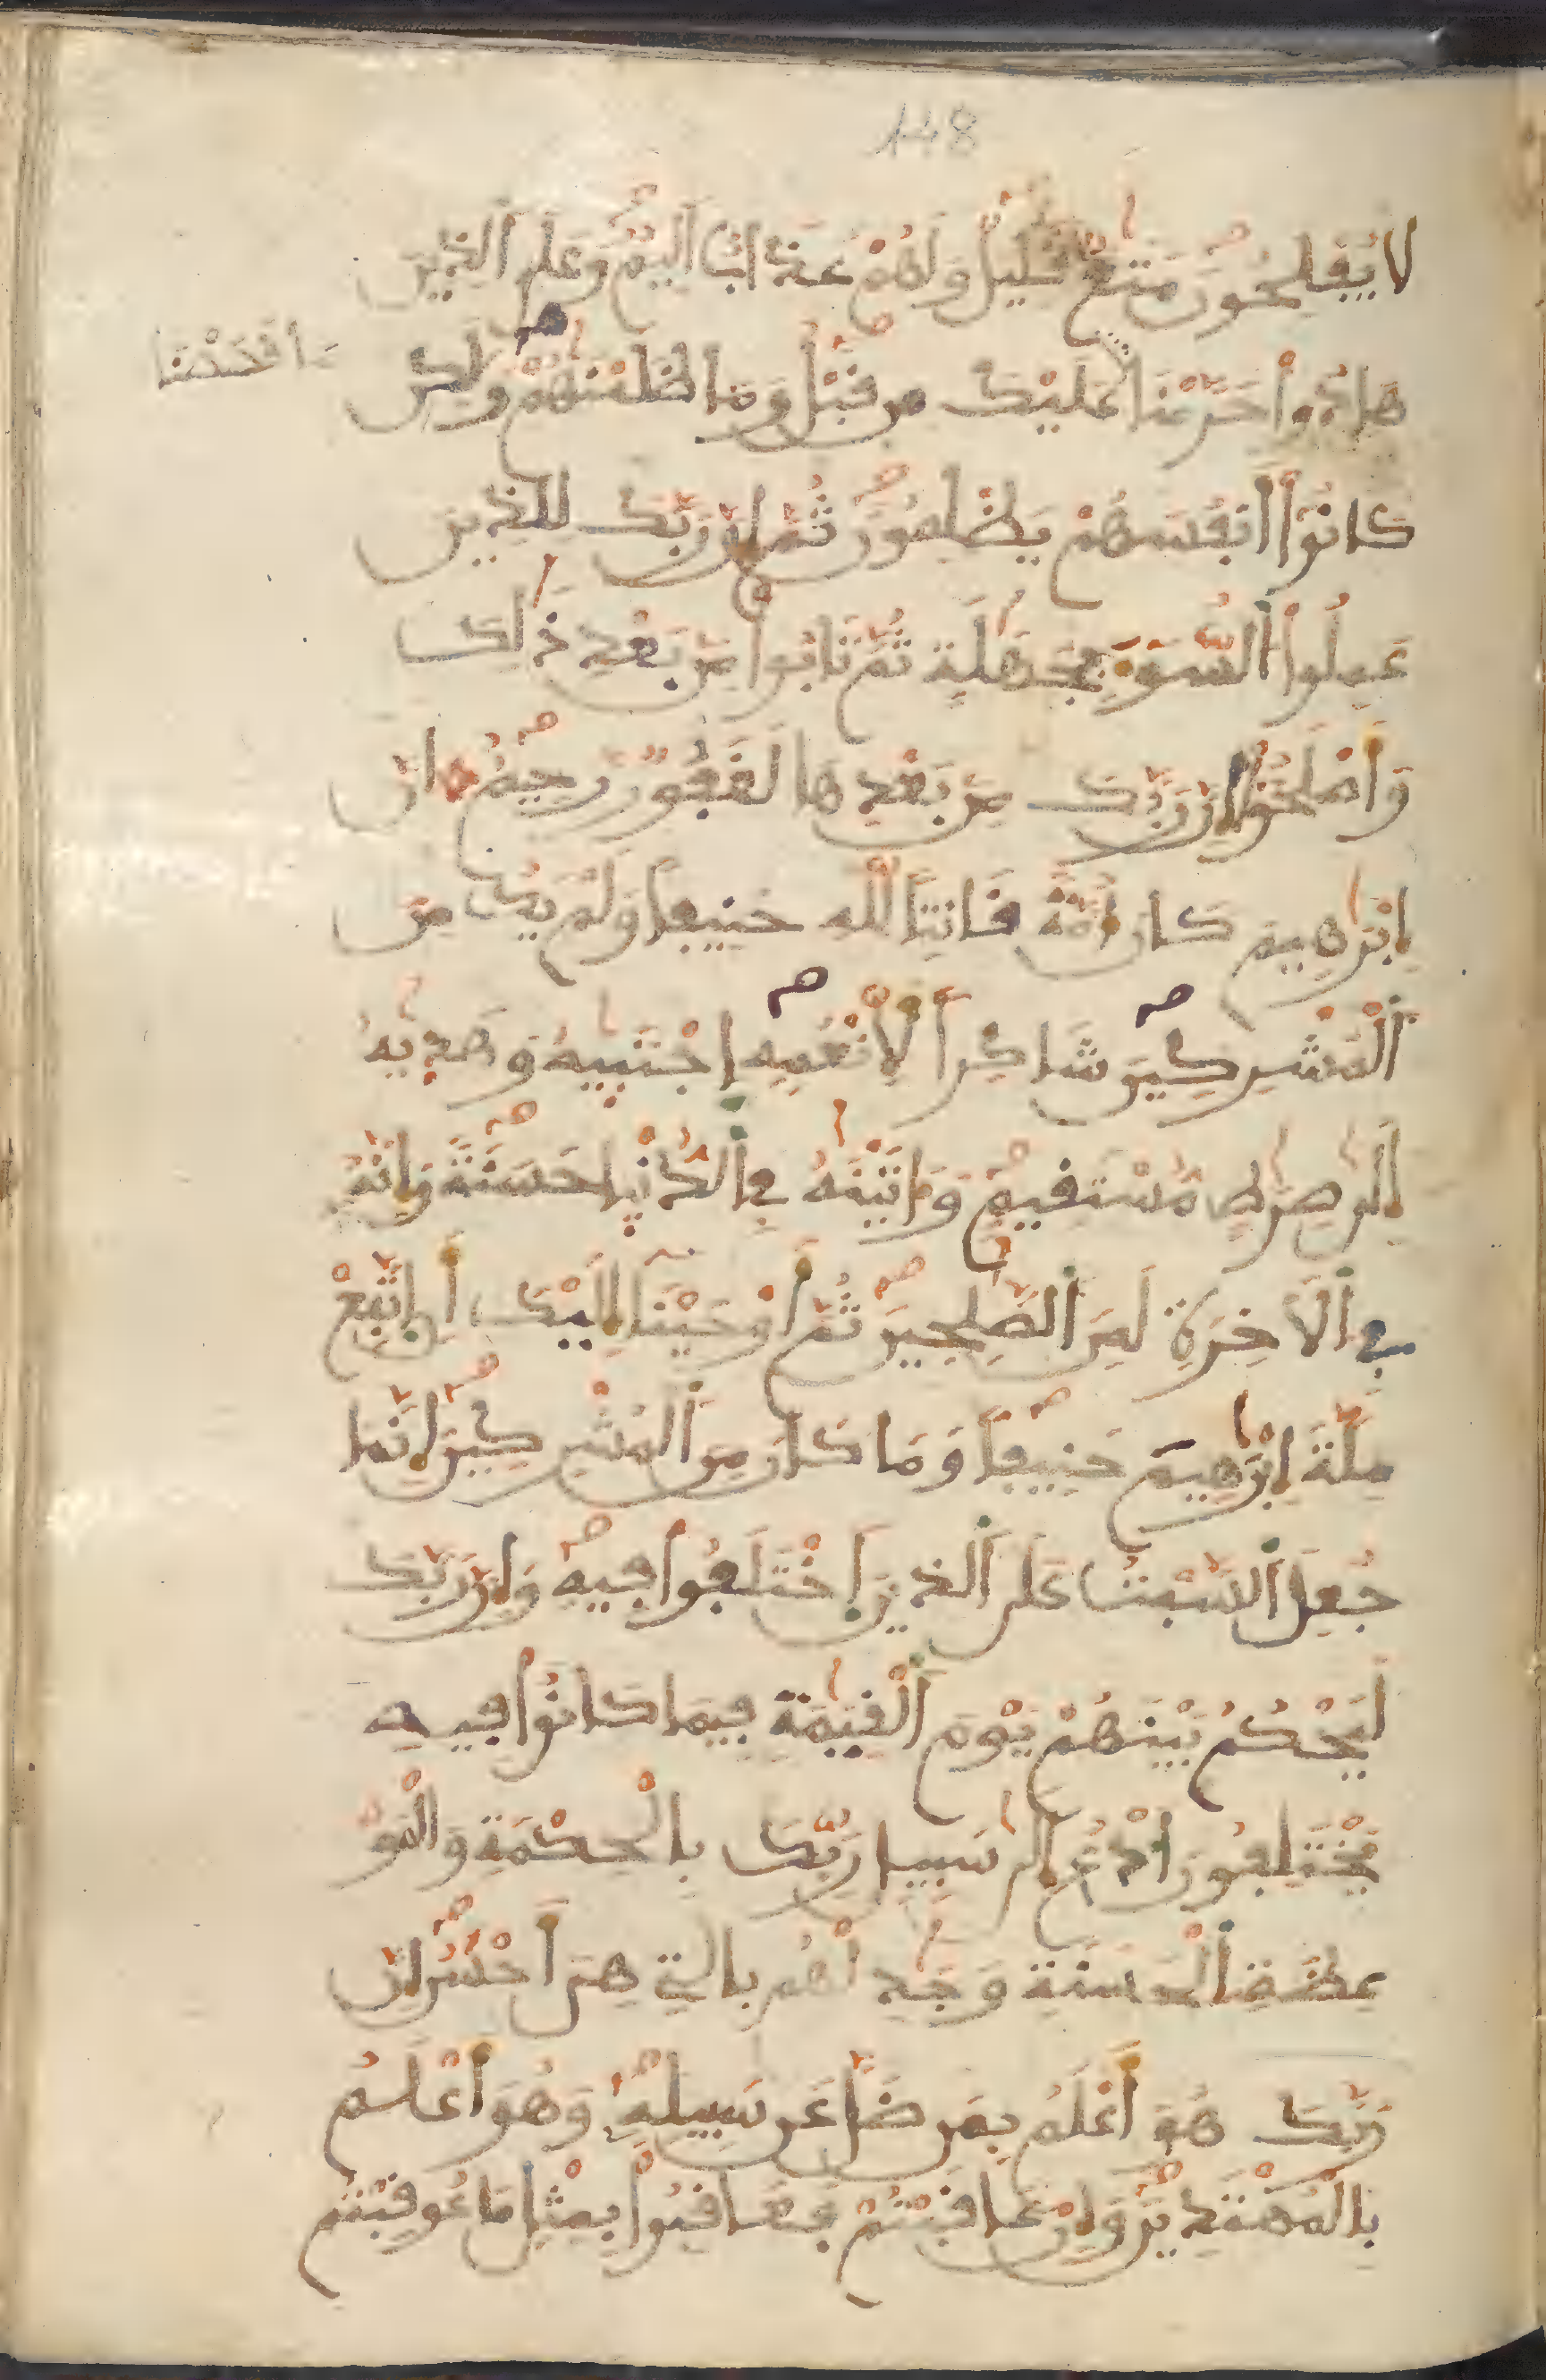 148
لَا يُفْلِحُونَ مَتَٰعٌ قَلِيلٌ وَلَهُمْ عَذَابٌ اَلِيمٌ وَعَلَى اَ۬لذِينَ
هَادُواْ حَرَّمْنَا عَلَيْكَ مِن قَبْلُ وَمَا ظَلَمْنَٰهُمْ وَلَٰكِن
مَا قَصَصْنَا
كَانُوٓاْ أَنفُسَهُمْ يَظْلِمُونَ ثُمَّ إِنَّ رَبَّكَ لِلذِينَ
عَمِلُواْ اُ۬لسُّوٓءَ بِجَهَٰلَةٍ ثُمَّ تَابُواْ مِنۢ بَعْدِ ذَٰلِكَ
وَأَصْلَحُوٓاْ إِنَّ رَبَّكَ مِنۢ بَعْدِهَا لَغَفُورٌ رَّحِيمٌ اِنَّ
إِبْرَٰهِيمَ كَانَ أُمَّةً قَانِتاً لِّلهِ حَنِيفاً وَلَمْ يَكُ مِنَ
اَ۬لْمُشْرِكِينَ شَاكِراً لِّأَنْعُمِهِ اِجْتَبَيٰهُ وَهَدَيٰهُ
إِلَىٰ صِرَٰطٍ مُّسْتَقِيمٍ وَءَاتَيْنَٰهُ فِي اِ۬لدُّنْيَا حَسَنَةً وَإِنَّهُ
فِي اِ۬لَاخِرَةِ لَمِنَ اَ۬لصَّٰلِحِينَ ثُمَّ أَوْحَيْنَآ إِلَيْكَ أَنِ اِ۪تَّبِعْ
مِلَّةَ إِبْرَٰهِيمَ حَنِيفاً وَمَا كَانَ مِنَ اَ۬لْمُشْرِكِينَ إِنَّمَا
جُعِلَ اَ۬لسَّبْتُ عَلَى اَ۬لذِينَ اَ۪خْتَلَفُواْ فِيهِ وَإِنَّ رَبَّكَ
لَيَحْكُمُ بَيْنَهُمْ يَوْمَ اَ۬لْقِيَٰمَةِ فِيمَا كَانُواْ فِيهِ
يَخْتَلِفُونَ اَ۟دْعُ إِلَىٰ سَبِيلِ رَبِّكَ بِالْحِكْمَةِ وَالْمَوْ
عِظَةِ اِ۬لْحَسَنَةِ وَجَٰدِلْهُم بِالتِي هِيَ أَحْسَنُ إِنَّ
رَبَّكَ هُوَ أَعْلَمُ بِمَن ضَلَّ عَن سَبِيلِهِ وَهُوَ أَعْلَمُ
بِالْمُهْتَدِينَ وَإِنْ عَاقَبْتُمْ فَعَاقِبُواْ بِمِثْلِ مَا عُوقِبْتُم